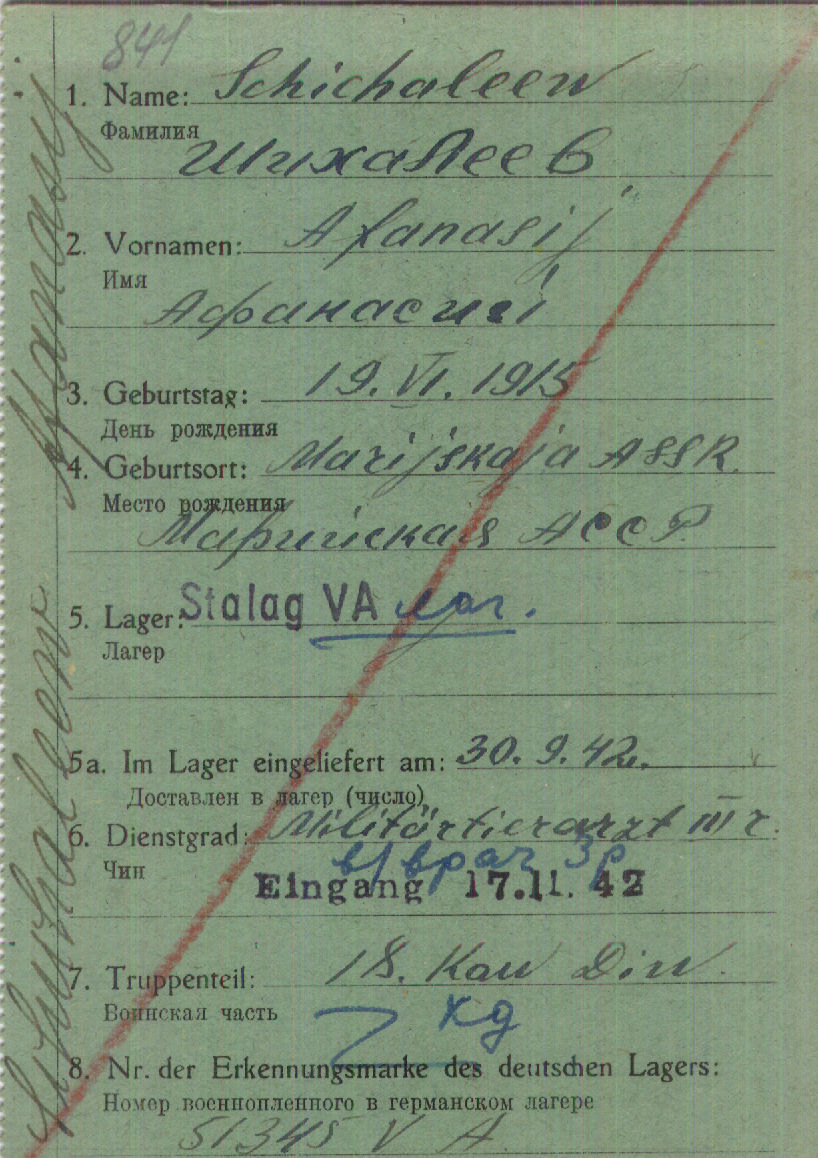 841
1. Name: Schichaleew
Фамилия
Шихалеев
2. Vornamen: Afanasij
Имя
Афанасий
3. Geburtstag: 19. VI. 1915
День рождения
4. Geburtsort: Marijskaja ASSR.
Место рождения
Марийская АССР.
5. Lager: Stalag VA лаг.
Лагер
5a. Im Lager eingeliefert am: 30. 9. 42.
Доставлен в лагер (число)
6. Dienstgrad: Militärtierarzt III r.
Чин
в/врач 3р
Eingang 17.11.42
7. Truppenteil: 18. Kaw Diw.
Воинская часть
кд
8. Nr. der Erkennungsmarke des deutschen Lagers:
Номер военнопленного в германском лагере
51345 V A
Schichaleew